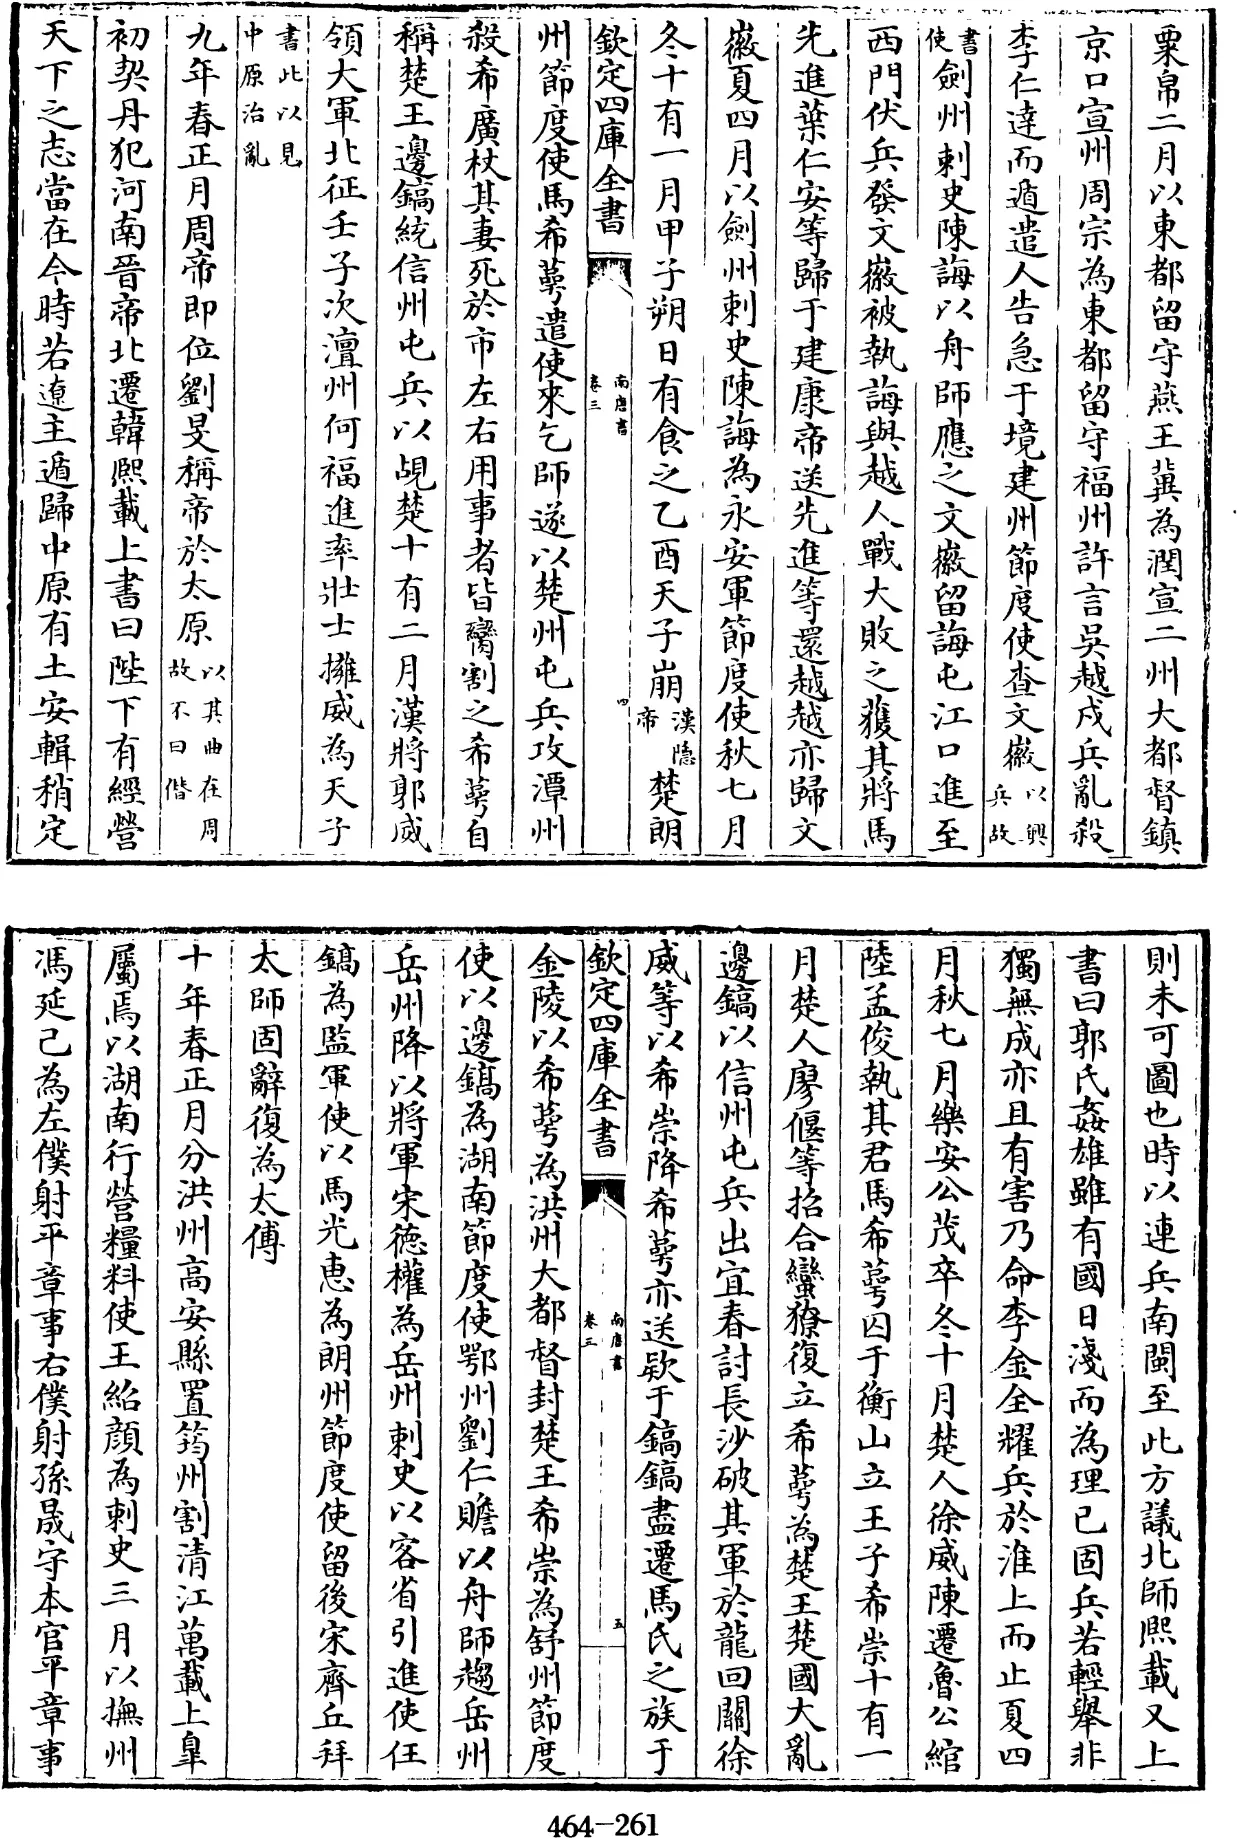 粟帛二月以東都留守燕王冀為潤宣二州大都督鎮
京口宣州周宗為東都留守福州許言吳越戍兵亂殺
李仁達而遁遣人告急于境建州節度使查文徽以興兵故
書使劍州刺史陳誨以舟師應之文徽留誨屯江口進至
西門伏兵發文徽被執誨與越人戰大敗之獲其將馬
先進葉仁安等歸于建康帝送先進等還越越亦歸文
徽夏四月以劍州刺史陳誨為永安軍節度使秋七月
冬十有一月甲子朔日有食之乙酉天子崩漢隱帝楚朗
欽定四庫全書 南唐書卷三 四
州節度使馬希萼遣使來乞師遂以楚州屯兵攻潭州
殺希廣杖其妻死於市左右用事者皆臠割之希萼自
稱楚王邊鎬統信州屯兵以覘楚十有二月漢將郭威
領大軍北征壬子次澶州何福進率壯士擁威為天子
書此以見中原治亂
九年春正月周帝即位劉旻稱帝於太原以其曲在周故不曰僭
初契丹犯河南晉帝北遷韓熙載上書曰陛下有經營
天下之志當在今時若遼主遁歸中原有土安輯稍定
則未可圖也時以連兵南閩至此方議北師熙載又上
書曰郭氏姦雄雖有國日淺而為理已固兵若輕舉非
獨無成亦且有害乃命李金全耀兵於淮上而止夏四
月秋七月樂安公茂卒冬十月楚人徐威陳遷魯公綰
陸孟俊執其君馬希萼囚于衡山立王子希崇十有一
月楚人廖偃等招合蠻獠復立希萼為楚王楚國大亂
邊鎬以信州屯兵出宜春討長沙破其軍於龍回關徐
威等以希崇降希萼亦送欵于鎬鎬盡遷馬氏之族于
欽定四庫全書 南唐書卷三 五
金陵以希萼為洪州大都督封楚王希崇為舒州節度
使以邊鎬為湖南節度使鄂州劉仁贍以舟師趨岳州
岳州降以將軍宋德權為岳州刺史以客省引進使任
鎬為監軍使以馬光惠為朗州節度使留後宋齊丘拜
太師固辭復為太傅
十年春正月分洪州高安縣置筠州割清江萬載上臯
屬焉以湖南行營糧料使王紹顏為刺史三月以撫州
馮延己為左僕射平章事右僕射孫晟守本官平章事
464-261